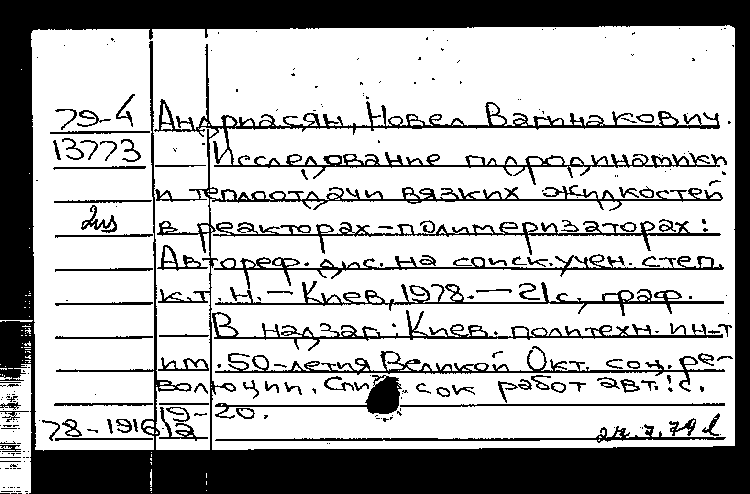 79-4 Андриасян, Новел Вагинакович.
13773 Исследование гидродинамики
и теплоотдачи вязких жидкостей
в реакторах-полимеризаторах:
Автореф. дис. на соиск. учен. степ.
к.т.н. — Киев, 1978. — 21 с., граф.
В надзаг: Киев. политехн. ин-т
им. 50-летия Великой Окт. соц. ре-
волюции. Список работ авт.: с.
19-20.
78-19162 27.7.79